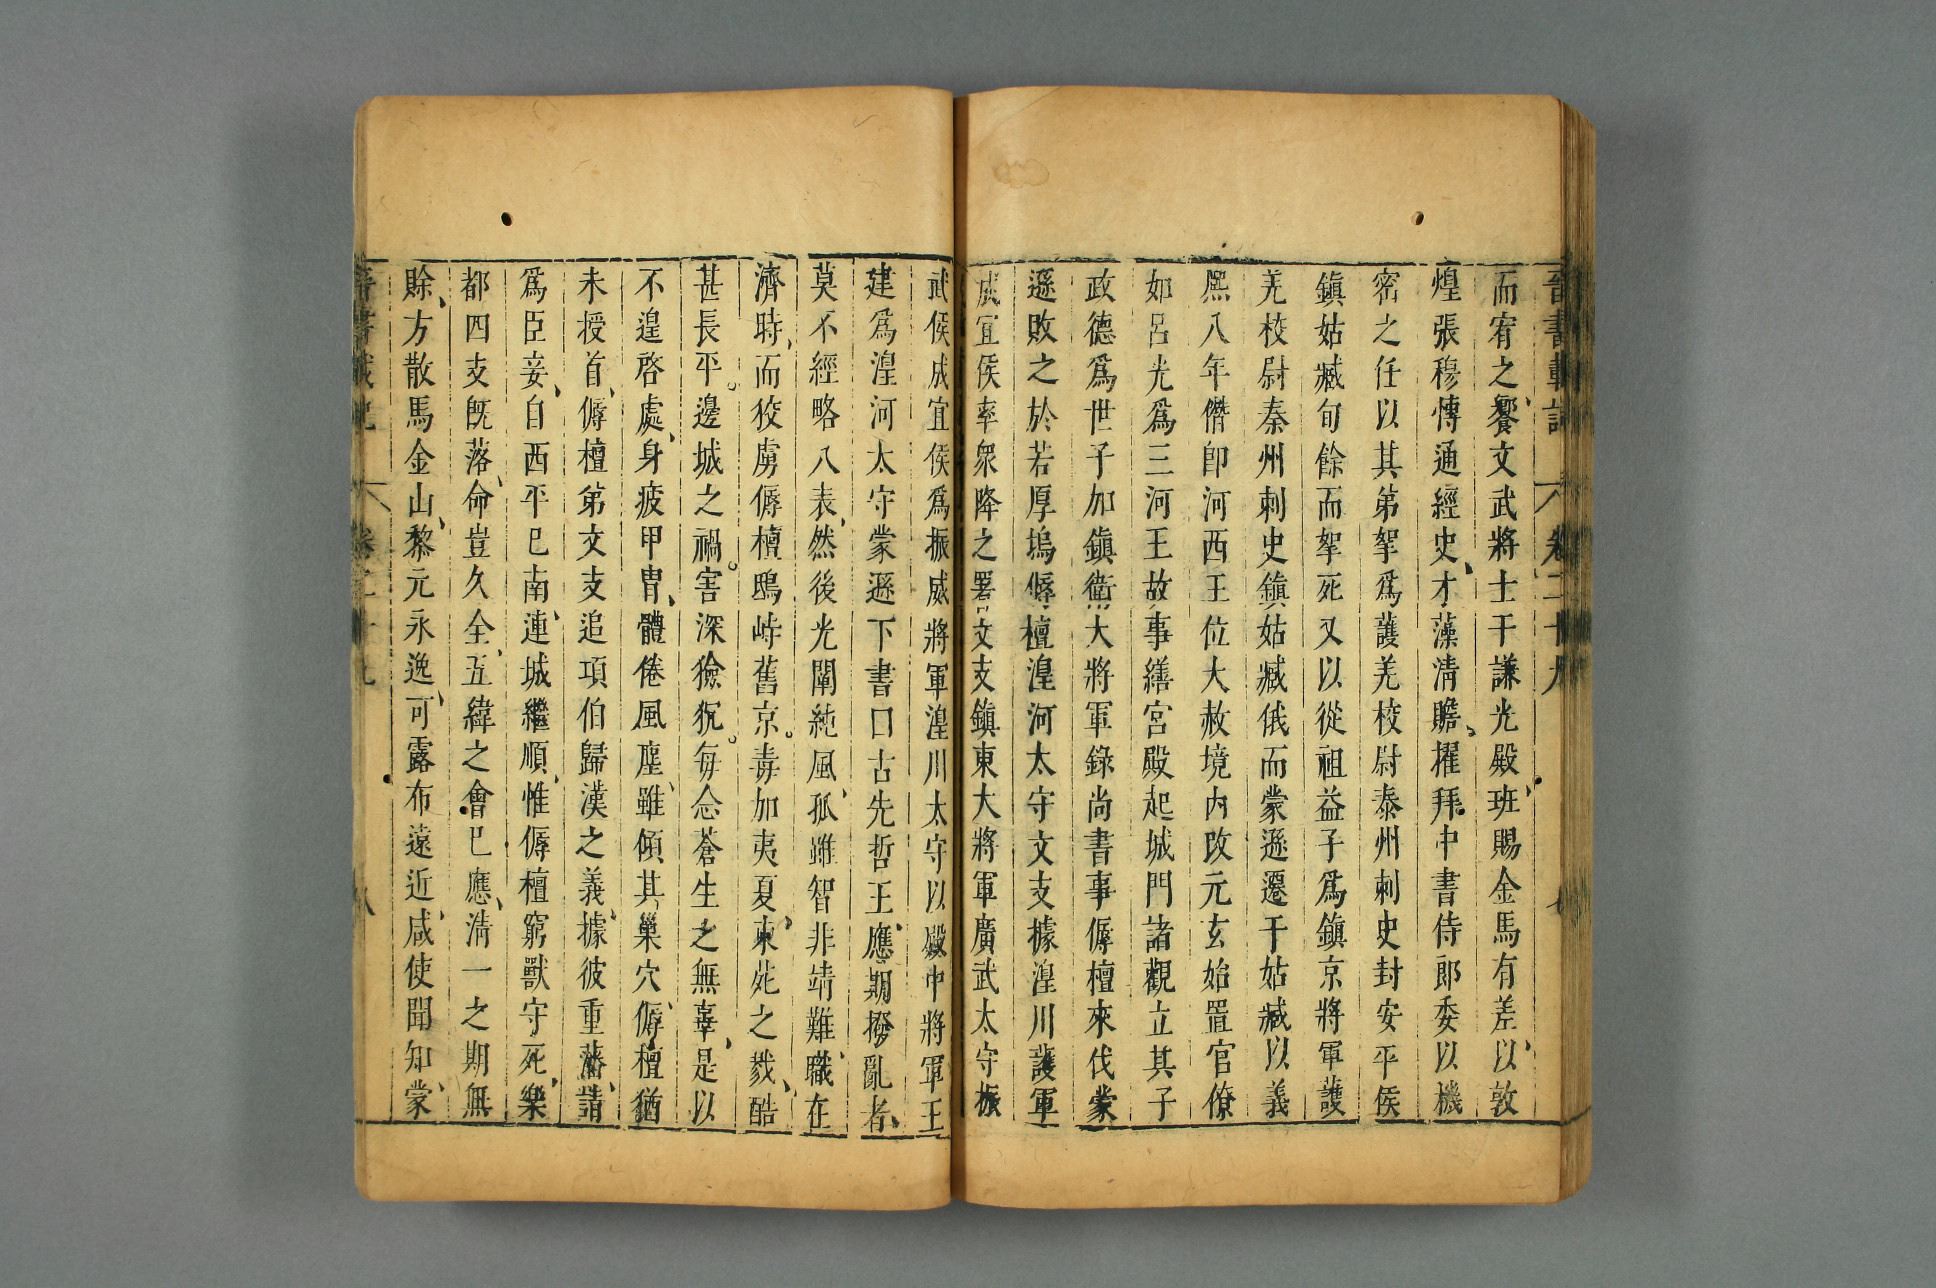 晉書載記 卷二十九 七
而宥之饗文武將士于謙光殿班賜金馬有差以敦
煌張穆愽通經史才藻淸贍擢拜中書侍郎委以機
密之任以其弟挐爲護羌校尉秦州刺史封安平侯
鎮姑臧旬餘而挐死又以從祖益子爲鎮京將軍護
羌校尉秦州刺史鎮姑臧俄而蒙遜遷于姑臧以義
熙八年僭卽河西王位大赦境內改元玄始置官僚
如呂光爲三河王故事繕宮殿起城門諸觀立其子
政德爲世子加鎮衞大將軍錄尚書事傉檀來伐蒙
遜敗之於若厚塢傉檀湟河太守文支據湟川護軍
成宜侯率衆降之署文支鎮東大將軍廣武太守振
武侯成宜侯爲振威將軍湟川太守以殿中將軍王
建爲湟河太守蒙遜下書曰古先哲王應期撥亂者
莫不經略八表然後光闡純風孤雖智非靖難職在
濟時而狡虜傉檀鴟峙舊京毒加夷夏東苑之戮酷
甚長平邊城之禍害深獫狁每念蒼生之無辜是以
不遑啓處身疲甲冑體倦風塵雖傾其巢穴傉檀猶
未授首傉檀弟文支追項伯歸漢之義據彼重藩請
爲臣妾自西平已南連城繼順惟傉檀窮獸守死樂
都四支旣落命豈久全五緯之會已應淸一之期無
賒方散馬金山黎元永逸可露布遠近咸使聞知蒙
晉書載記 卷二十九 八